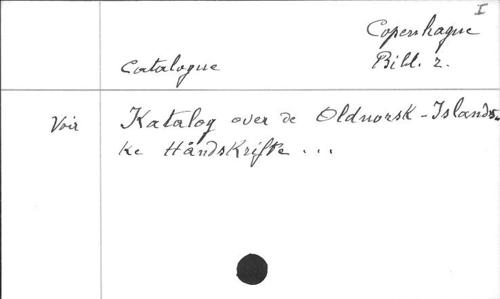 I
Copenhague
Catalogue Bibl. 2.
Voir Katalog over de Oldnorsk-Islands-
ke Håndskrifte ...